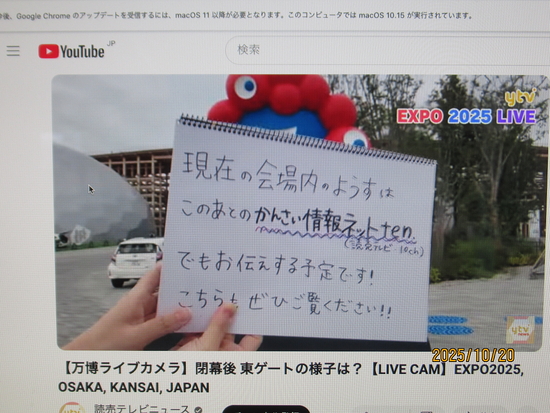 今後、Google Chrome のアップデートを受信するには、macOS 11 以降が必要となります。このコンピュータでは macOS 10.15 が実行されています。
YouTube JP
検索
ytv
EXPO 2025 LIVE
現在の会場内のようすは
このあとのかんさい情報ネットten.
(読売テレビ 10ch)
でもお伝えする予定です!
こちらもぜひご覧ください!!
ytv
2025/10/20
【万博ライブカメラ】閉幕後 東ゲートの様子は?【LIVE CAM】EXPO2025,
OSAKA, KANSAI, JAPAN
読売テレビニュース